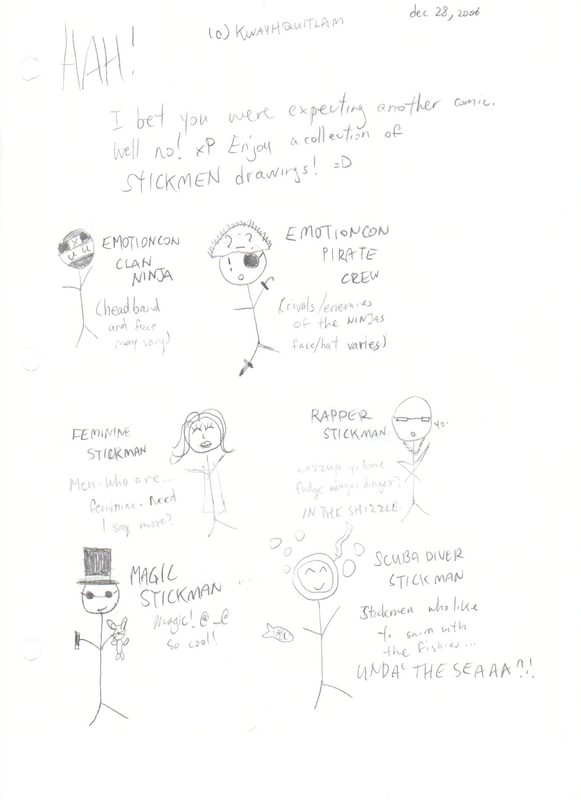 dec 28, 2006
(c) KWAYHQUITLAM
HAH!
I bet you were expecting another comic.
Well no! xP Enjoy a collection of
STICKMEN drawings! =D
EMOTIONCON
CLAN
NINJA
(headband
and face
may vary)
EMOTIONCON
PIRATE
CREW
(rivals/enemies
of the NINJAS.
face/hat varies)
FEMININE
STICKMAN
Men who are...
feminine. Need
I say more?
RAPPER
STICKMAN
yo.
wazzup yo home
fudge dinger?
IN THE SHIZZLE.
MAGIC
STICKMAN
Magic! @_@
So cool!
SCUBA DIVER
STICKMAN
Stickmen who like
to swim with
the fishies...
UNDA' THE SEAAA?!!